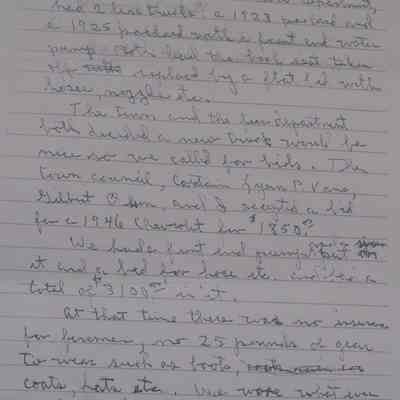 had 2 hose trucks. a 1923 packard and
a 1925 packard with a front end water
pump. Both had the back seat taken
replaced by a flat bed with
hoses, nozzle etc.
The Town and the fire department
both decided a new truck would be
nice so we called for bids. The
town council, Captain Lynn P. Vane,
Gilbert Olson, and I secured a bid
for a 1946 Chevrolet for $1850.00
We had a front end pump put on
it and a bed for hose etc. and had a
total of $3100.00 in it.
At that time there was no insurance
for firemen, no 25 pounds of gear
to wear such as boots,
coats, hats etc. We wore what ever